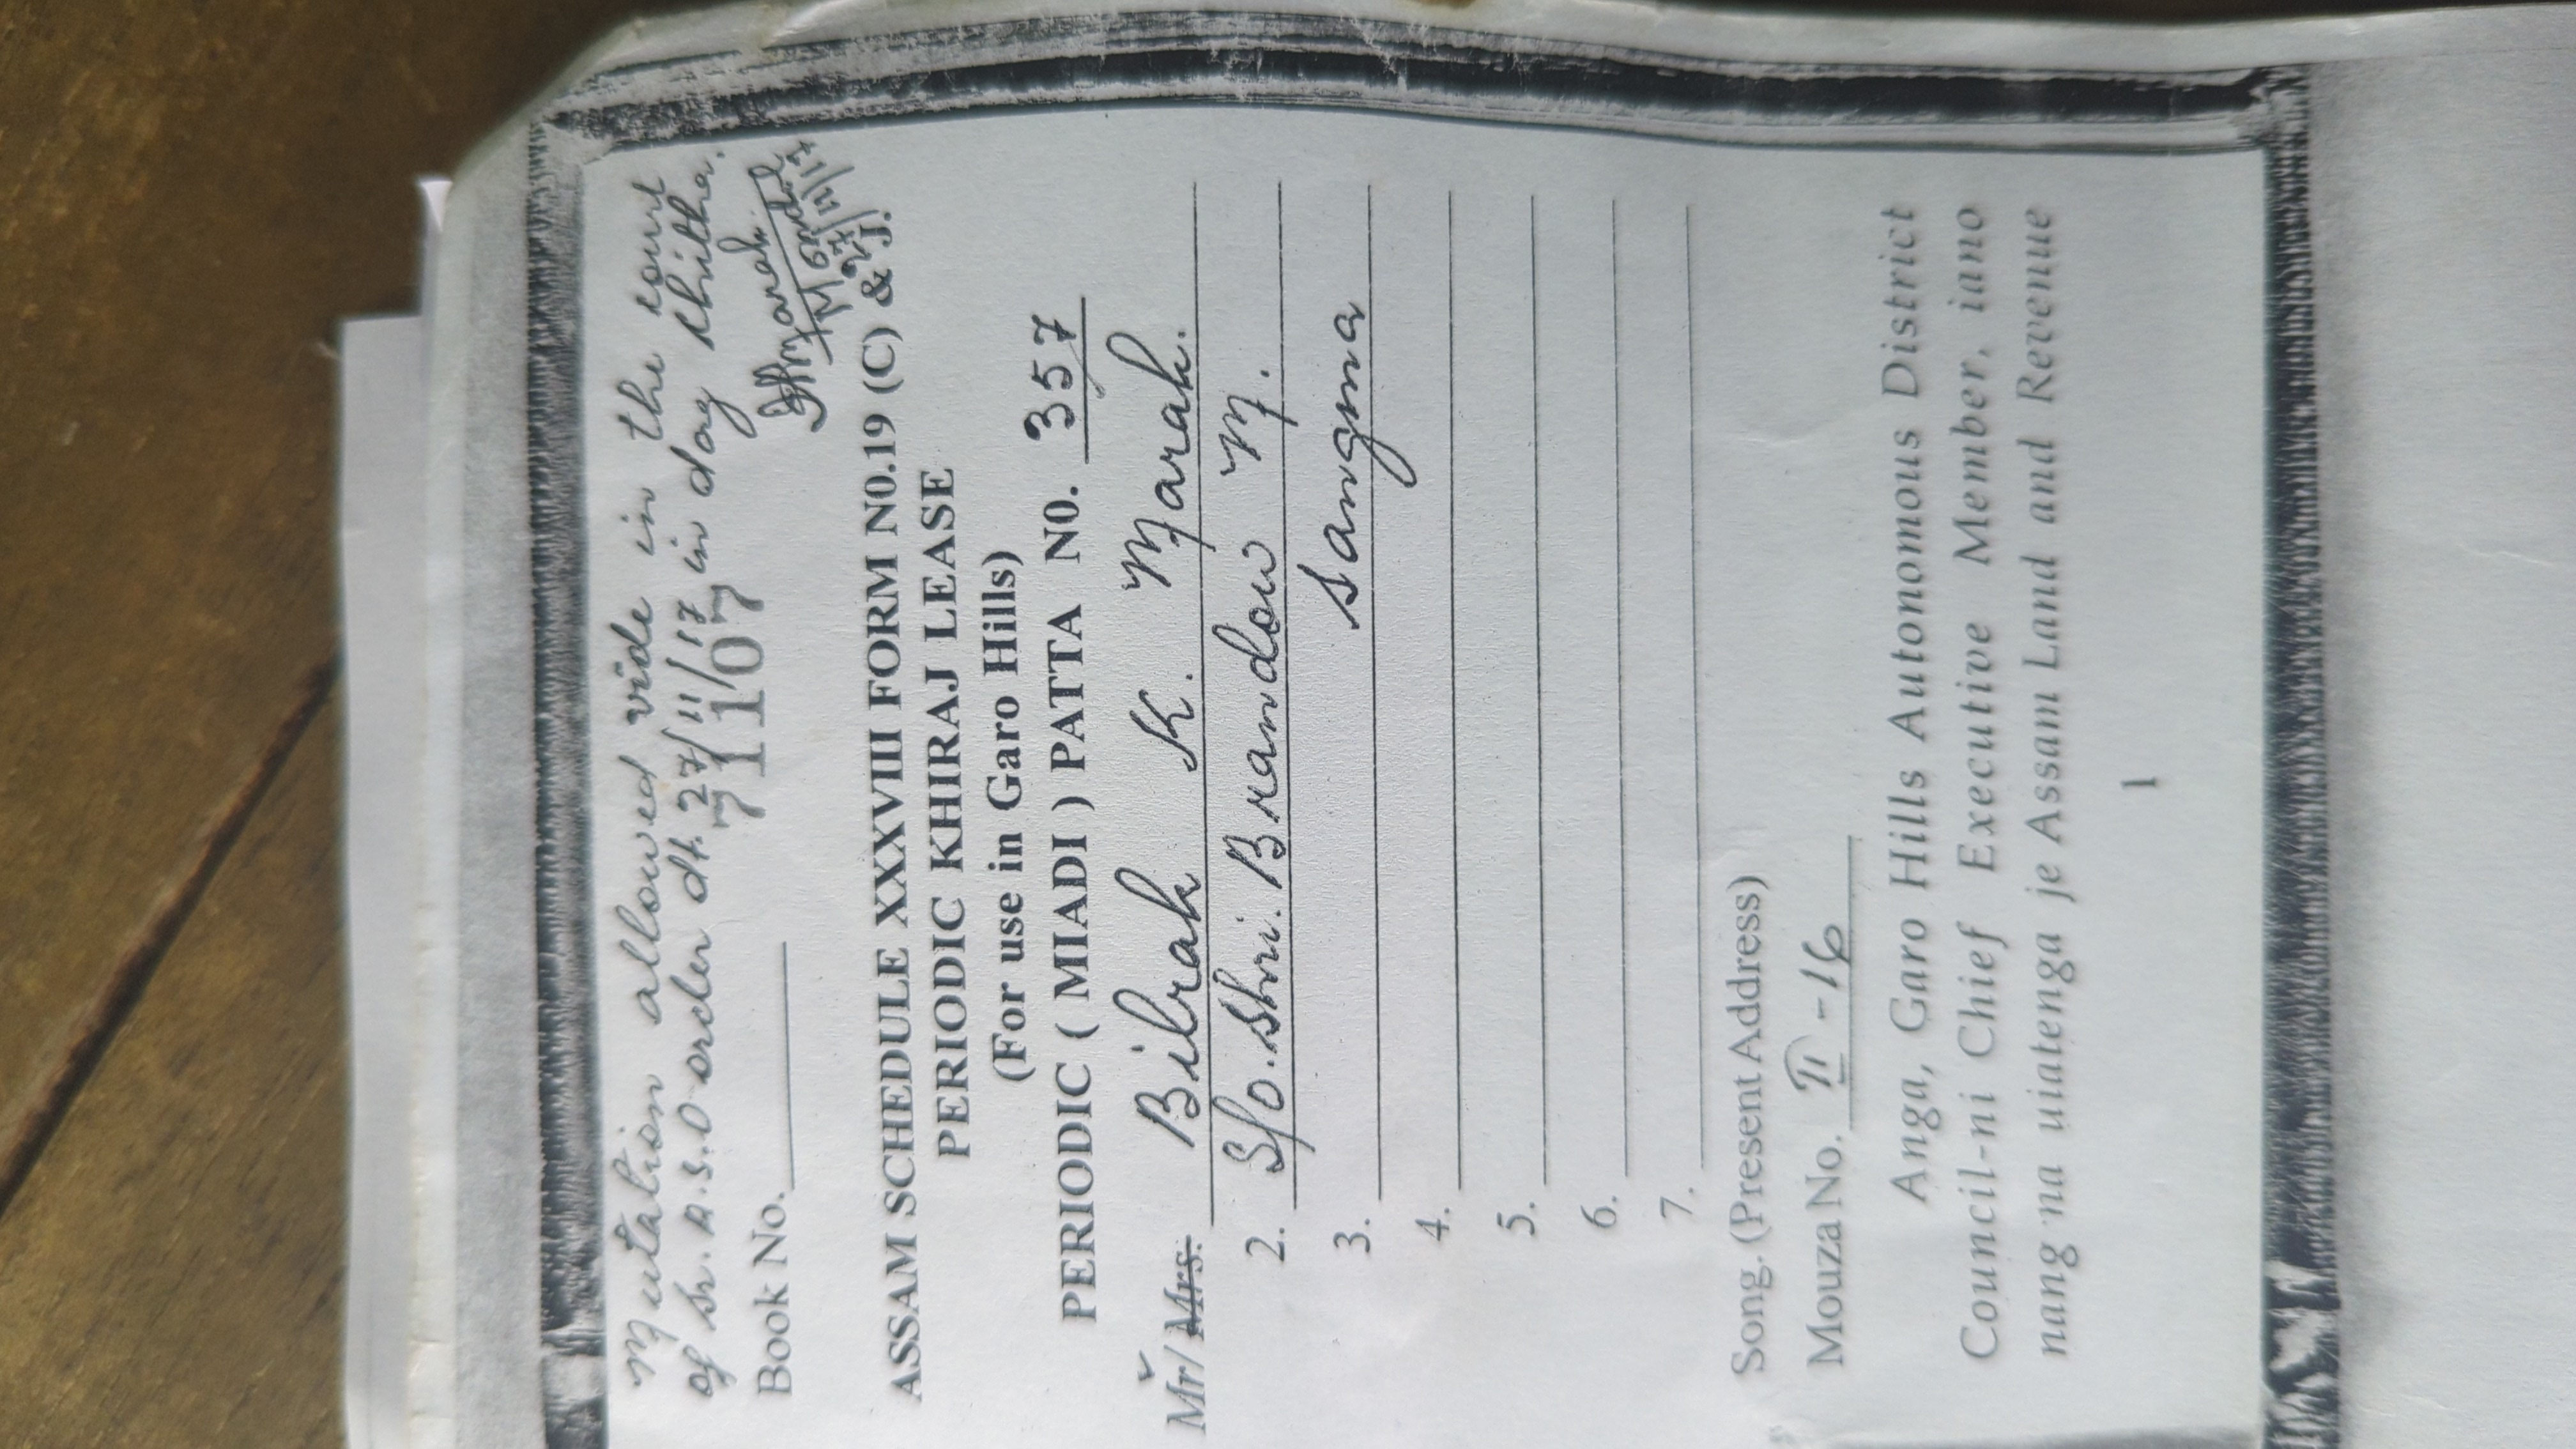 Mutation allowed vide in the court
of Sr. A.S.O order dt. 27/11/17 in dag chitha.
Marak
Mondal
27/11/17
Book No. 71107
ASSAM SCHEDULE XXXVIII FORM N0.19 (C) & J.
PERIODIC KHIRAJ LEASE
(For use in Garo Hills)
PERIODIC ( MIADI ) PATTA N0. 357
Mr/ Mrs. Bilrak K. Marak.
2. S/o. Shri. Brandow M.
3. Sangma
4.
5.
6.
7.
Song. (Present Address)
Mouza No. II - 16
Anga, Garo Hills Autonomous District
Council-ni Chief Executive Member, iano
nang'na uiatenga je Assam Land and Revenue
1